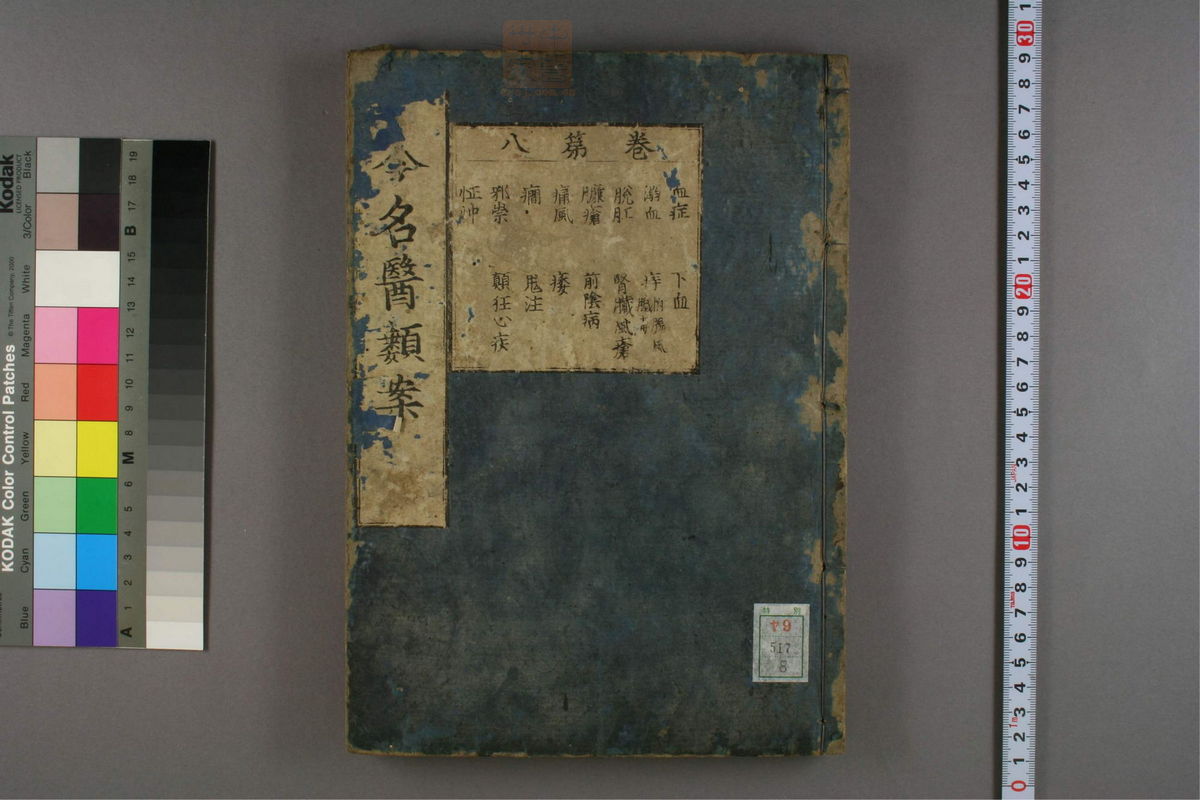 今名醫類案
卷第八
血症
下血
溺血
痔
脫肛
腎臟風瘡
臁瘡
前陰病
痛風
痿
癇
鬼注
邪祟
顛狂心疾
怔忡
特別
ヤ9
517
8
Kodak
LICENSED PRODUCT
KODAK Color Control Patches
© The Tiffen Company, 2000
Blue
Cyan
Green
Yellow
Red
Magenta
White
3/Color
Black
A 1 2 3 4 5 6 M 8 9 10 11 12 13 14 15 B 17 18 19
0 1 2 3 4 5 6 7 8 9 10 1 2 3 4 5 6 7 8 9 20 1 2 3 4 5 6 7 8 9 30 1